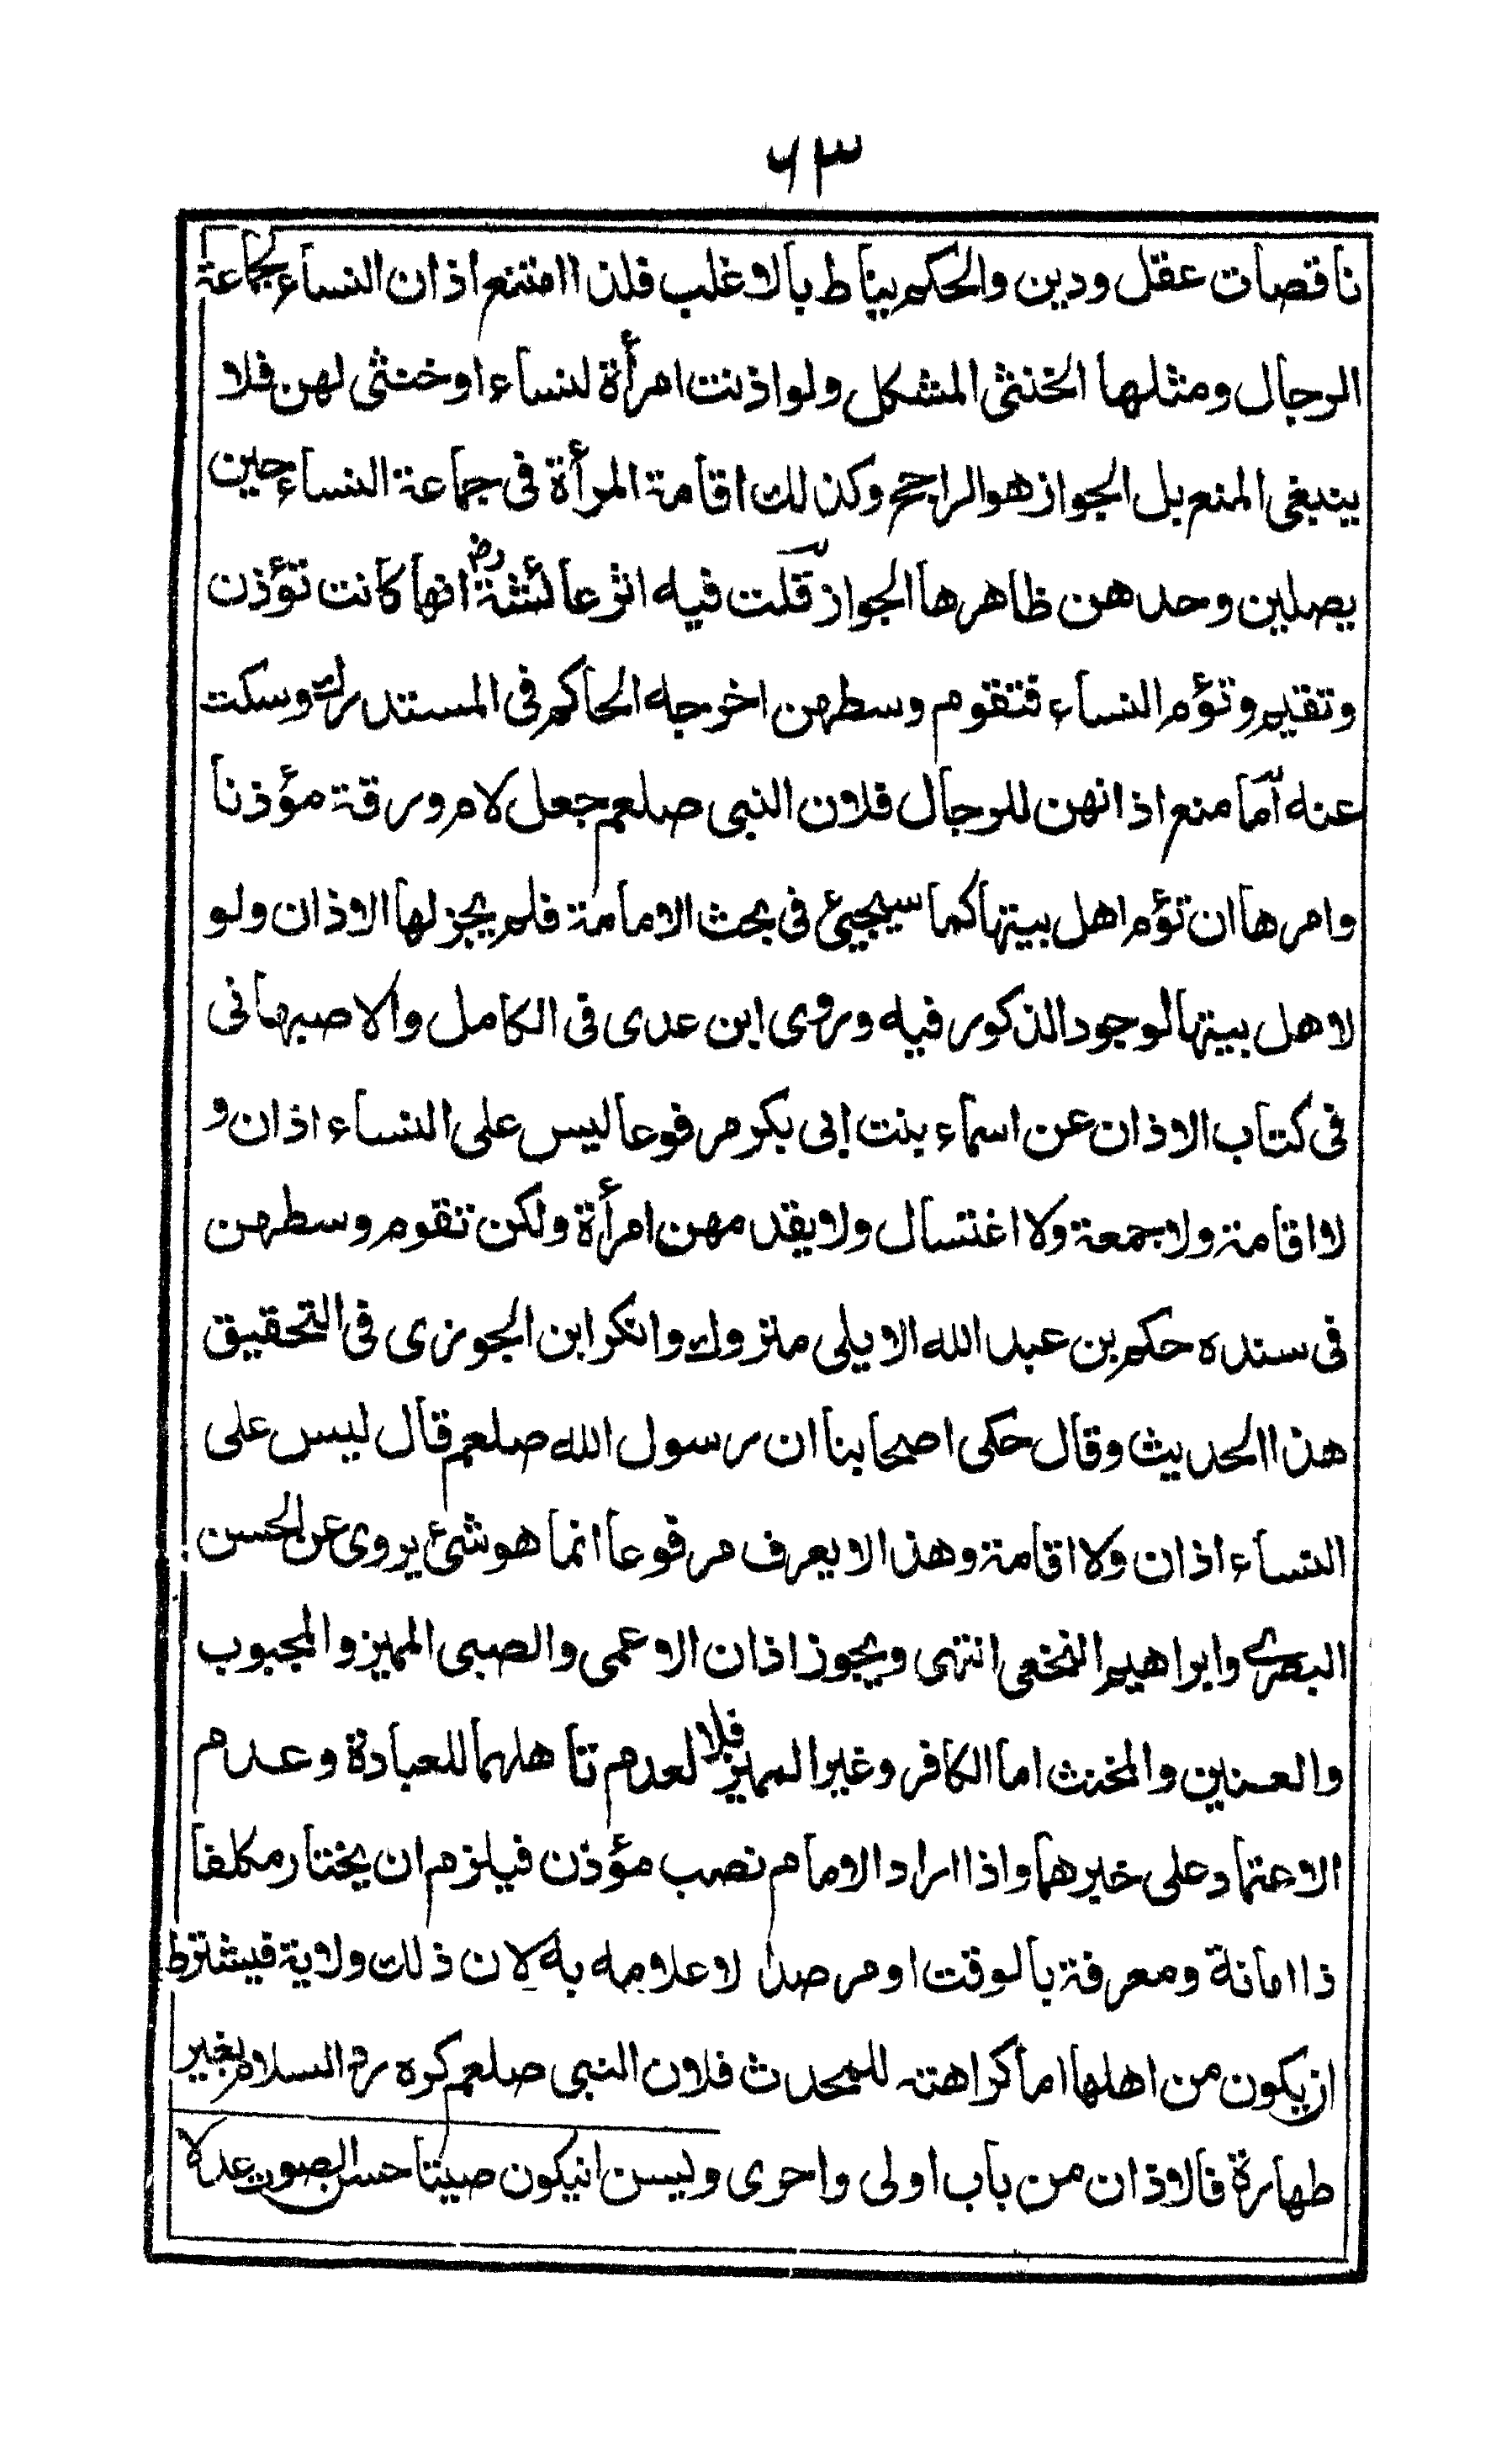 ٦٣
ناقصات عقل ودين والحكم يناط بالاغلب فلذا امتنع اذان النساء لجماعة
الرجال ومثلها الخنثى المشكل ولو اذنت امرأة لنساء او خنثى لهن فلا
ينبغى المنع بل الجواز هو الراجح وكذلك اقامة المرأة فى جماعة النساء حين
يصلين وحدهن ظاهرها الجواز قلت فيه اثر عائشةرض انها كانت تؤذن
وتقيم وتؤم النساء فتقوم وسطهن اخرجه الحاكم فى المستدرك وسكت
عنه أما منع اذانهن للرجال فلان النبى صلعم جعل لام ورقة مؤذنا
وامرها ان تؤم اهل بيتها كما سيجيئ فى بحث الامامة فلم يجز لها الاذان ولو
لاهل بيتها لوجود الذكور فيه وروى ابن عدى فى الكامل والاصبهانى
فى كتاب الاذان عن اسماء بنت ابى بكر مرفوعا ليس على النساء اذان و
لا اقامة ولا جمعة ولا اغتسال ولا يقدمهن امرأة ولكن تقوم وسطهن
فى سنده حكم بن عبد الله الايلى متروك وانكر ابن الجوزى فى التحقيق
هذا الحديث وقال حكى اصحابنا ان رسول الله صلعم قال ليس على
النساء اذان ولا اقامة وهذا لا يعرف مرفوعا انما هو شئ يروى عن الحسن
البصرى وابراهيم النخعى انتهى ويجوز اذان الاعمى والصبى المميز والمجبوب
والعنين والمخنث اما الكافر وغير المميز فلا لعدم تاهلهما للعبادة وعدم
الاعتماد على خبرهما واذا اراد الامام نصب مؤذن فيلزم ان يختار مكلفا
ذا امانة ومعرفة بالوقت او مرصدا لاعلامه به لان ذلك ولاية فيشترط
ان يكون من اهلها اما كراهته للمحدث فلان النبى صلعم كره رد السلام بغير
طهارة فالاذان من باب اولى واحرى وليسن انيكون صيتا حسن الصوت عدلا